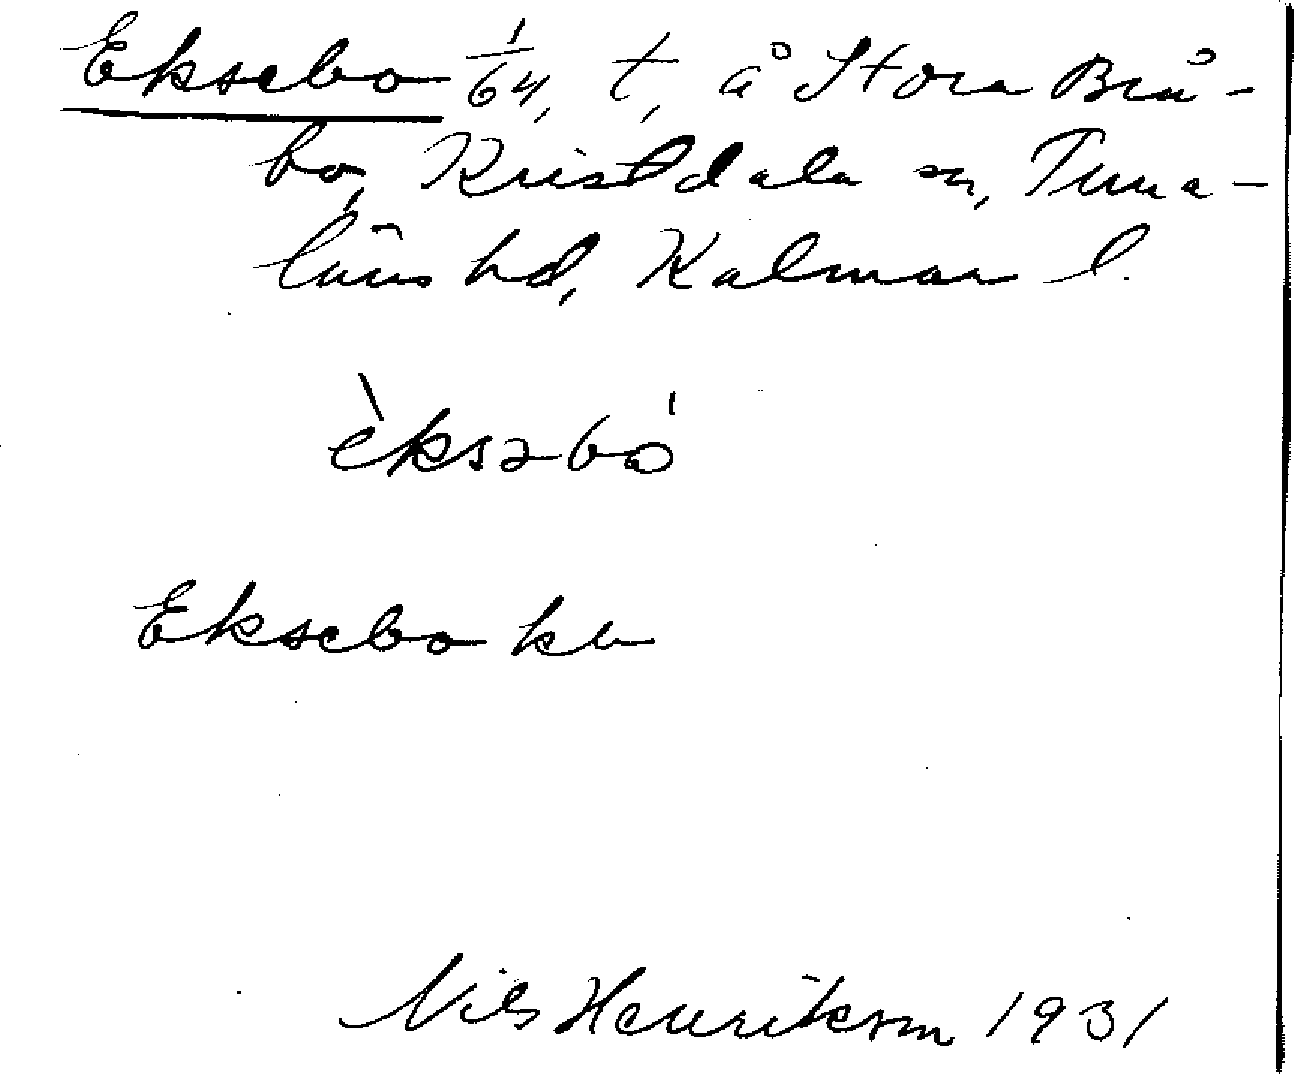 Eksebo 1/64, t, å Stora Brå-
bo, Kristdala sn, Tuna-
läns hd, Kalmar l.
èksəbó
Eksebo kb
Nils Henrikson 1931